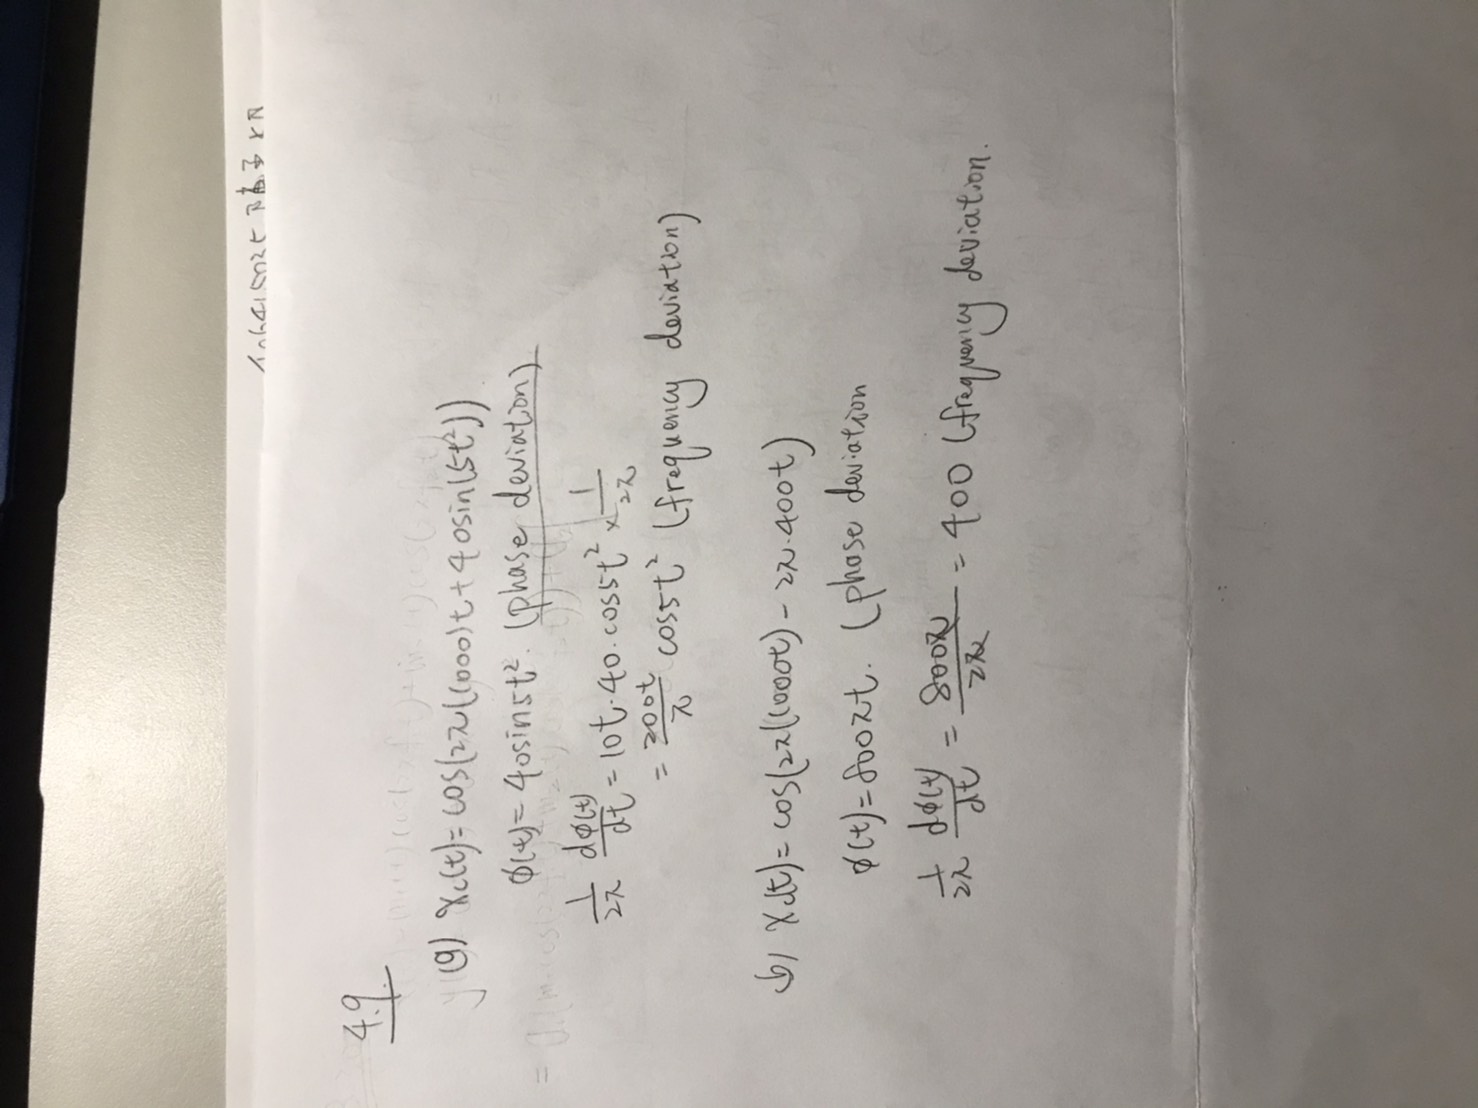 4.9.
(a) Xc(t)= cos(2π(1000)t + 40sin(5t²))
φ(t)= 40sin5t². (phase deviation)
1/2π dφ(t)/dt = 10t·40·cos5t² × 1/2π
= 200t/π cos5t² (frequency deviation)
(b) Xc(t)= cos(2π(1000t) - 2π·400t)
φ(t)=800πt. (phase deviation
1/2π dφ(t)/dt = 800π/2π = 400 (frequency deviation.